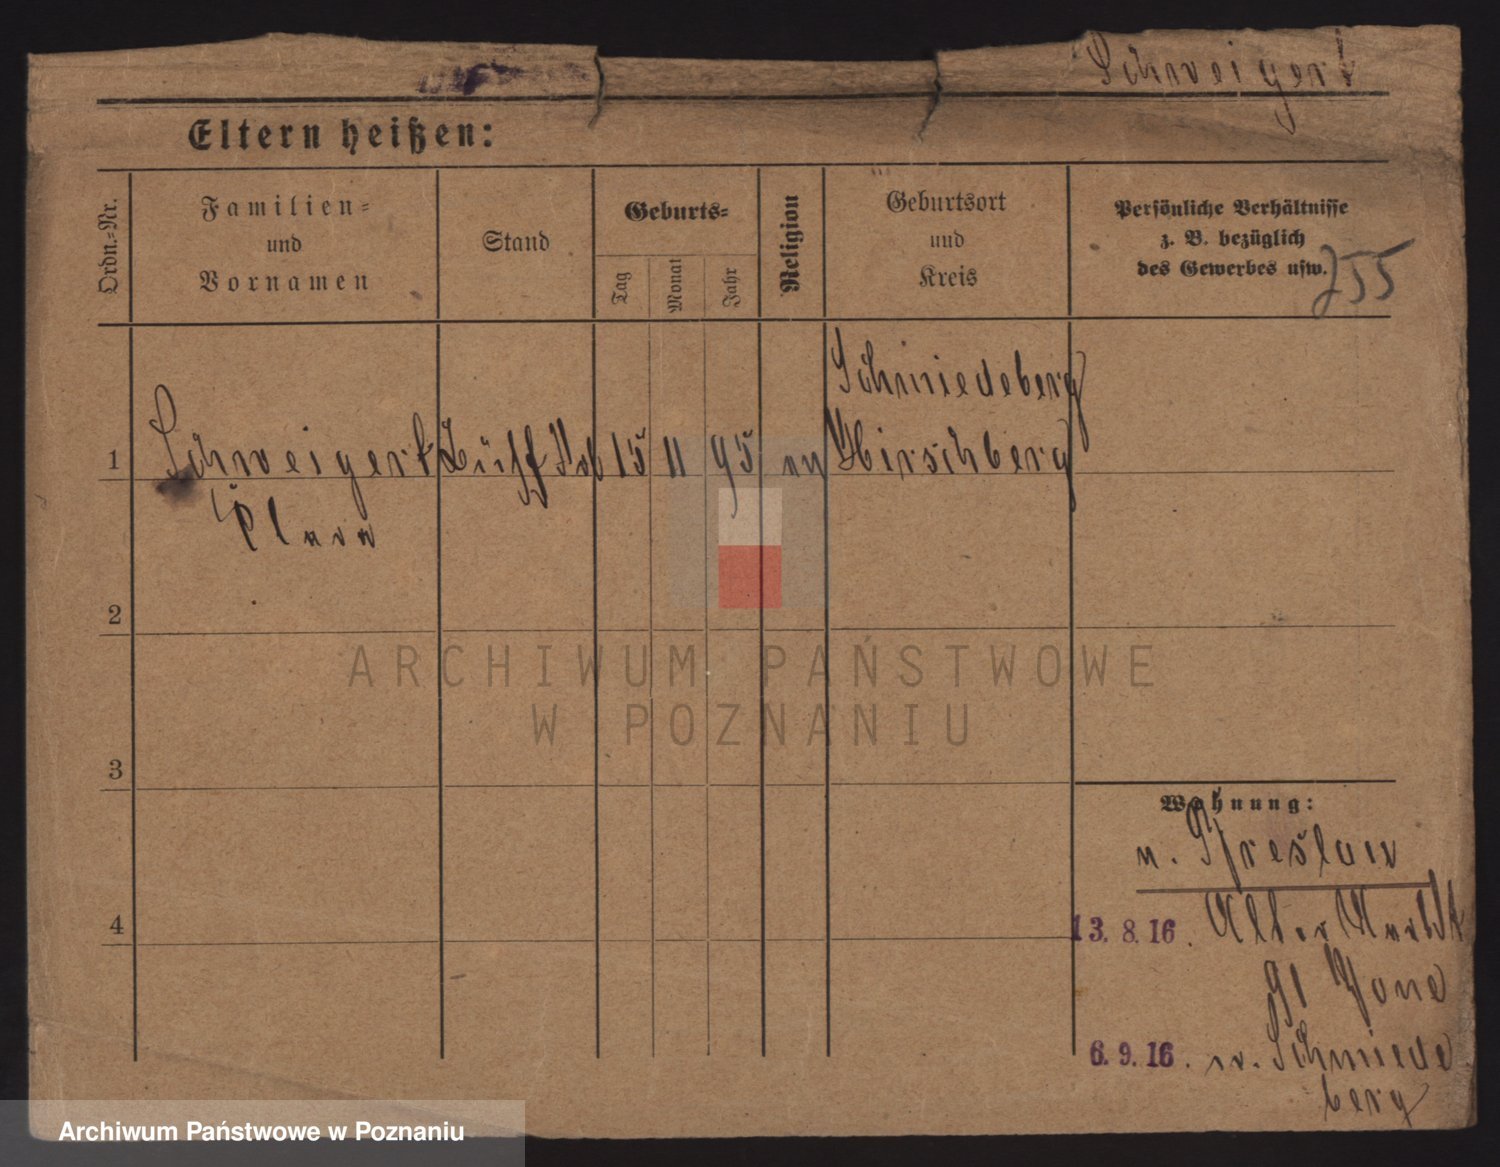 Schweigert
Eltern heißen:
Ordn.-Nr.
Familien-
und
Vornamen
Stand
Geburts-
Tag
Monat
Jahr
Religion
Geburtsort
und
Kreis
Persönliche Verhältnisse
z. B. bezüglich
des Gewerbes usw.
755
Schmiedeberg
1 Schweigert 15 11 95 Hirschberg
Clara
2
3
4
Wohnung:
Breslau
13. 8. 16. Alter Markt
91
6. 9. 16. n. Schmiede
berg
ARCHIWUM PAŃSTWOWE
W POZNANIU
Archiwum Państwowe w Poznaniu